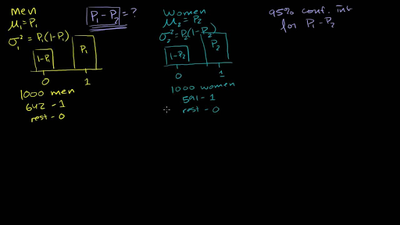 men
μ₁=P₁
σ₁²=P₁(1-P₁)
1-P₁
P₁
0 1
1000 men
642 - 1
rest - 0
P₁ - P₂ = ?
Women
μ₂ = P₂
σ₂²=P₂(1-P₂)
1-P₂
P₂
0 1
1000 women
591 - 1
rest - 0
95% conf. int
for P₁ - P₂